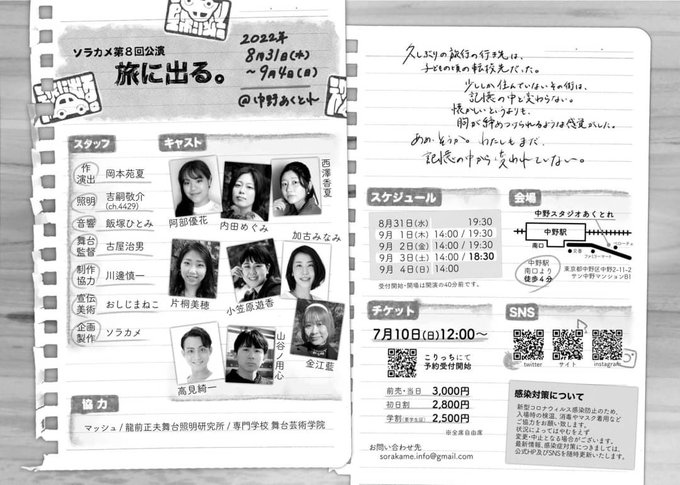 ソラカメ第8回公演
旅に出る。
2022年
8月31日(水)
～9月4日(日)
@中野あくとれ
スタッフ
作
演出
岡本苑夏
照明
吉嗣敬介
(ch.4429)
音響
飯塚ひとみ
舞台
監督
古屋治男
制作
協力
川邊慎一
宣伝
美術
おしじまねこ
企画
製作
ソラカメ
キャスト
阿部優花
内田めぐみ
西澤香夏
片桐美穂
小笠原遊香
加古みなみ
高見綺一
山谷ノ用心
金江藍
協力
マッシュ / 龍前正夫舞台照明研究所 / 専門学校 舞台芸術学院
久しぶりの旅行の行き先は、
子どもの頃の転校先だった。
少ししか住んでいないその街は、
記憶の中と変わらない。
懐かしいというよりも、
胸が締めつけられるような感覚がした。
ああ、そうか。わたしもまだ、
記憶の中から変われていない。
スケジュール
8月31日(水) 19:30
9月 1日(木) 14:00 / 19:30
9月 2日(金) 14:00 / 19:30
9月 3日(土) 14:00 / 18:30
9月 4日(日) 14:00
受付開始・開場は開演の40分前です。
会場
中野スタジオあくとれ
中野駅
南口
交番
ファミリーマート
中野駅
南口より
徒歩4分
東京都中野区中野2-11-2
サン中野マンションB1
チケット
7月10日(日)12:00～
こりっちにて
予約受付開始
前売・当日 3,000円
初日割 2,800円
学割(要学生証) 2,500円
※全席自由席
お問い合わせ先
sorakame.info@gmail.com
SNS
twitter
サイト
instagram
感染対策について
新型コロナウィルス感染防止のため、
入場時の検温、消毒やマスク着用など
ご協力をお願い致します。
状況によってはやむをえず
変更・中止となる場合がございます。
最新情報、感染症対策につきましては、
公式HP及びSNSを随時更新いたします。